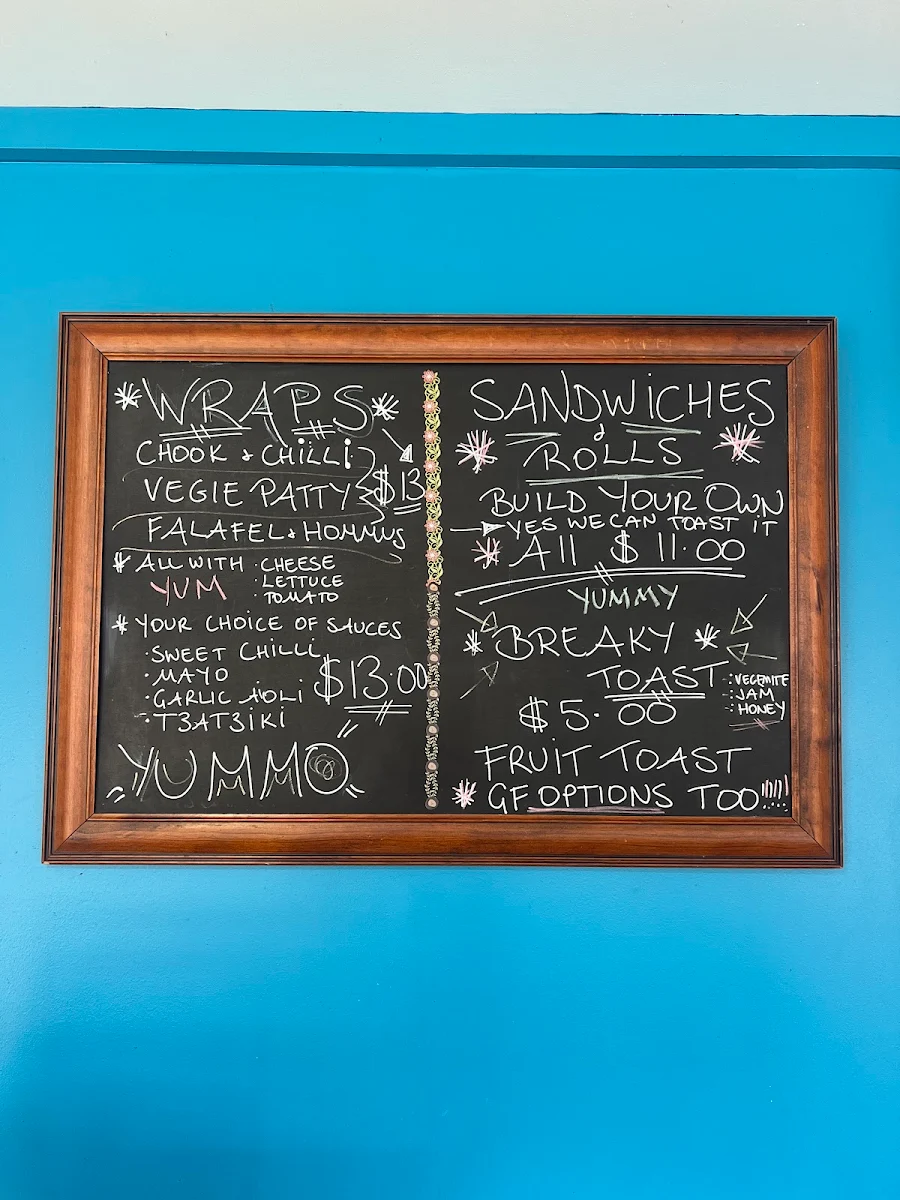 WRAPS
CHOOK & CHILLI
VEGIE PATTY $13
FALAFEL & HOMMUS
ALL WITH · CHEESE
YUM · LETTUCE
· TOMATO
YOUR CHOICE OF SAUCES
· SWEET CHILLI
· MAYO $13.00
· GARLIC AIOLI
· T3AT3IKI
YUMMO
SANDWICHES
&
ROLLS
BUILD YOUR OWN
YES WE CAN TOAST IT
All $11.00
YUMMY
BREAKY
TOAST · VEGEMITE
· JAM
$5.00 · HONEY
FRUIT TOAST
GF OPTIONS TOO!!!!!